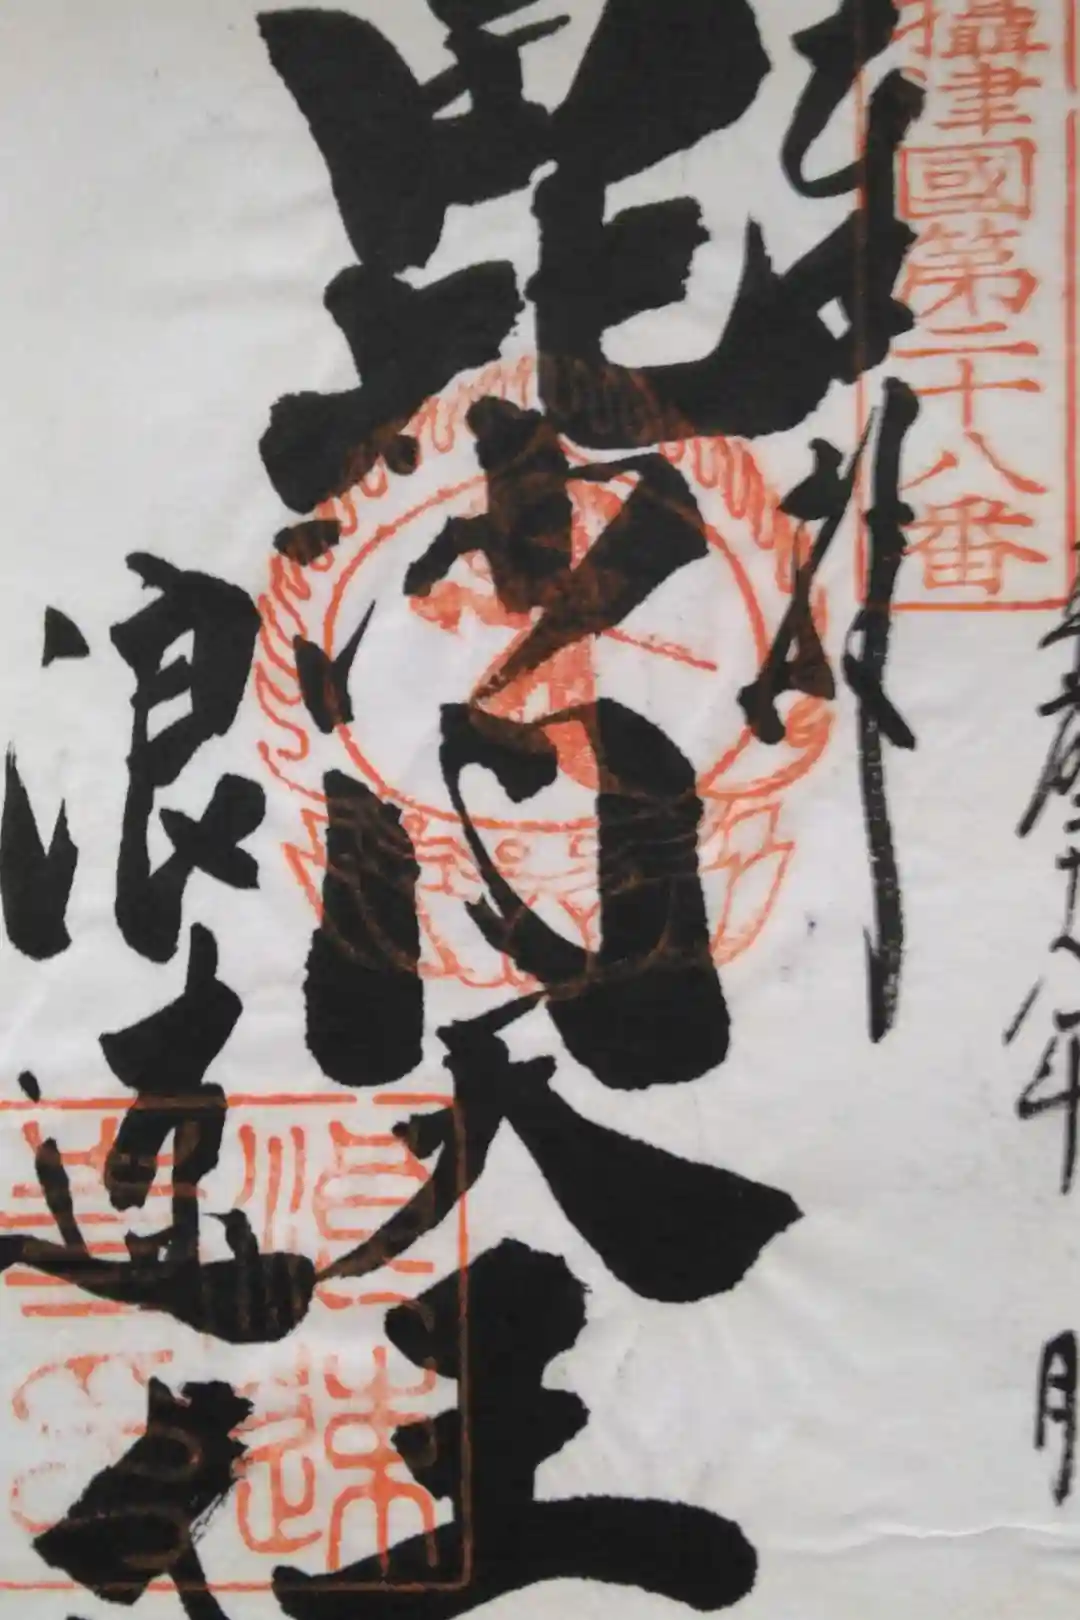 十八年 月
攝津國第二十八番
奉拝
毘沙門天王
浪速寺